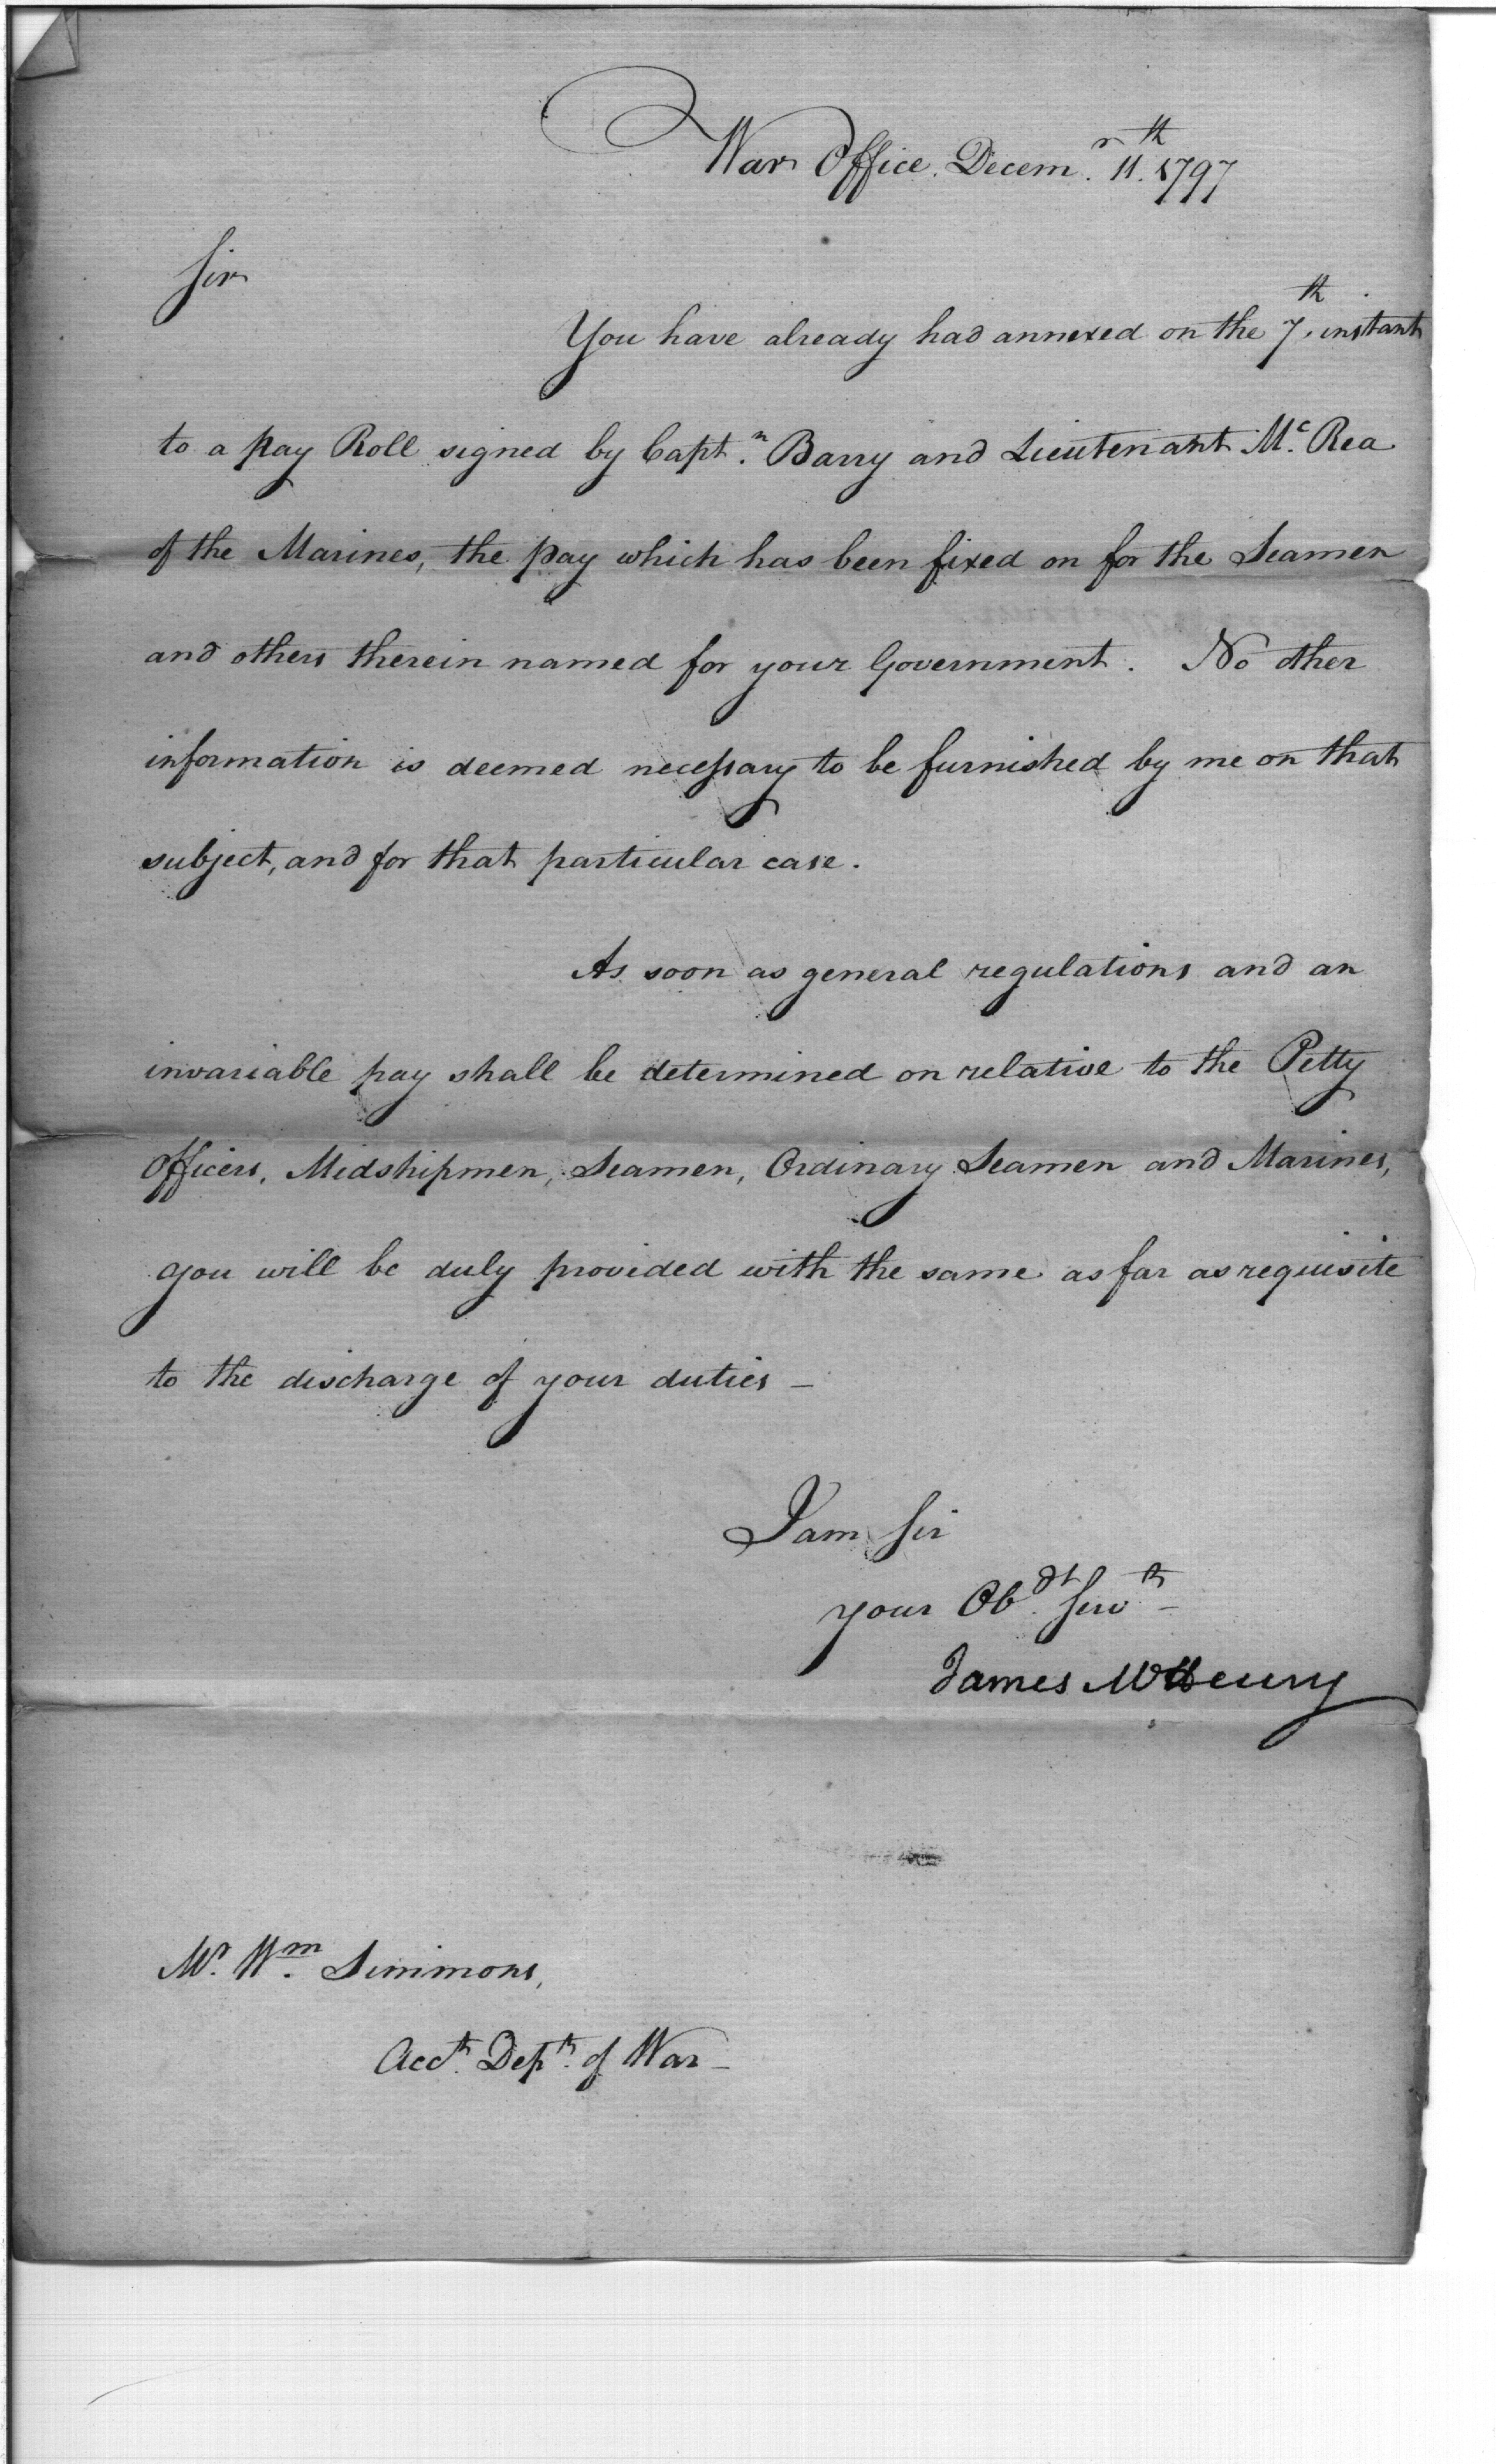 War Office. Decem.r 11.th 1797
Sir
You have already had annexed on the 7.th instant
to a pay Roll signed by Capt.n Barry and Lieutenant Mc. Rea
of the Marines, the pay which has been fixed on for the Seamen
and others therein named for your Government. No other
information is deemed necessary to be furnished by me on that
subject, and for that particular case.
As soon as general regulations and an
invariable pay shall be determined on relative to the Petty
Officers, Midshipmen, Seamen, Ordinary Seamen and Marines,
you will be duly provided with the same as far as requisite
to the discharge of your duties –
I am Sir
your Ob.dt Serv.t –
James McHenry
Mr. Wm. Simmons,
Acct. Dept. of War –